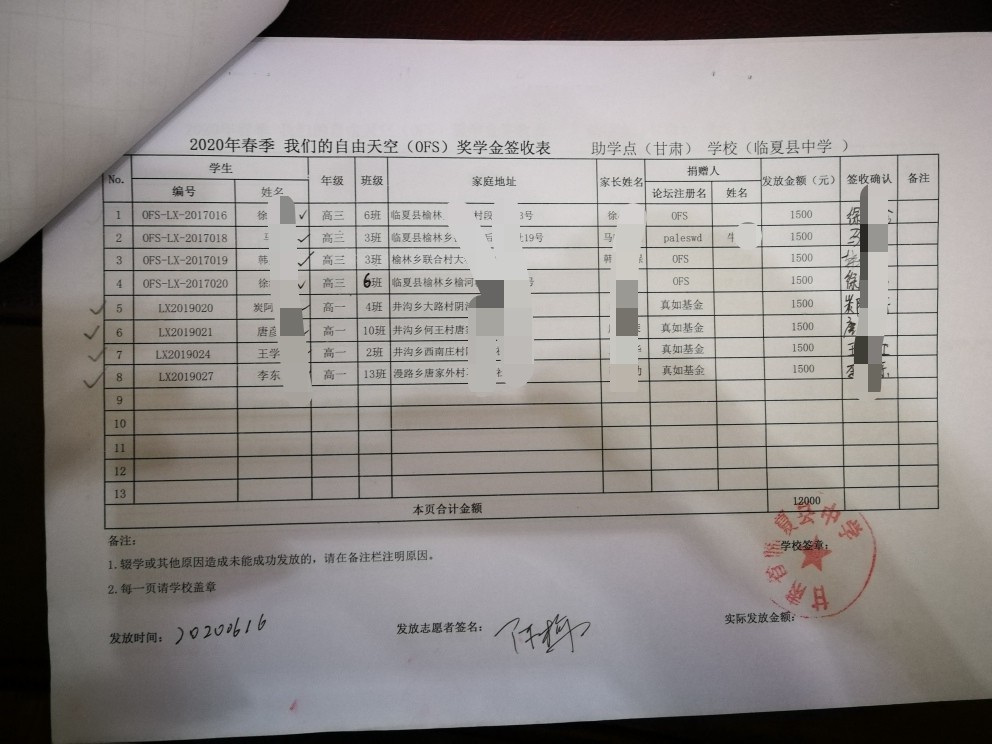 2020年春季 我们的自由天空（OFS）奖学金签收表 助学点（甘肃） 学校（临夏县中学 ）
No. 学生 年级 班级 家庭地址 家长姓名 捐赠人 发放金额（元） 签收确认 备注
编号 姓名 论坛注册名 姓名
1 OFS-LX-2017016 徐 高三 6班 临夏县榆林 村段 3号 徐 OFS 1500
2 OFS-LX-2017018 马 高三 3班 临夏县榆林乡 19号 马 paleswd 牛 1500
3 OFS-LX-2017019 韩 高三 3班 榆林乡联合村大 韩 OFS 1500
4 OFS-LX-2017020 徐 高三 6班 临夏县榆林乡榆河 号 OFS 1500 徐
5 LX2019020 炭阿 高一 4班 井沟乡大路村阴 真如基金 1500
6 LX2019021 唐彦 高一 10班 井沟乡何王村唐 真如基金 1500
7 LX2019024 王学 高一 2班 井沟乡西南庄村 真如基金 1500
8 LX2019027 李东 高一 13班 漫路乡唐家外村 社 真如基金 1500 李
9
10
11
12
13
本页合计金额 12000
备注：
学校签章：
1.辍学或其他原因造成未能成功发放的，请在备注栏注明原因。
2.每一页请学校盖章
甘肃省临夏县中学
发放时间：20200616 发放志愿者签名： 实际发放金额：